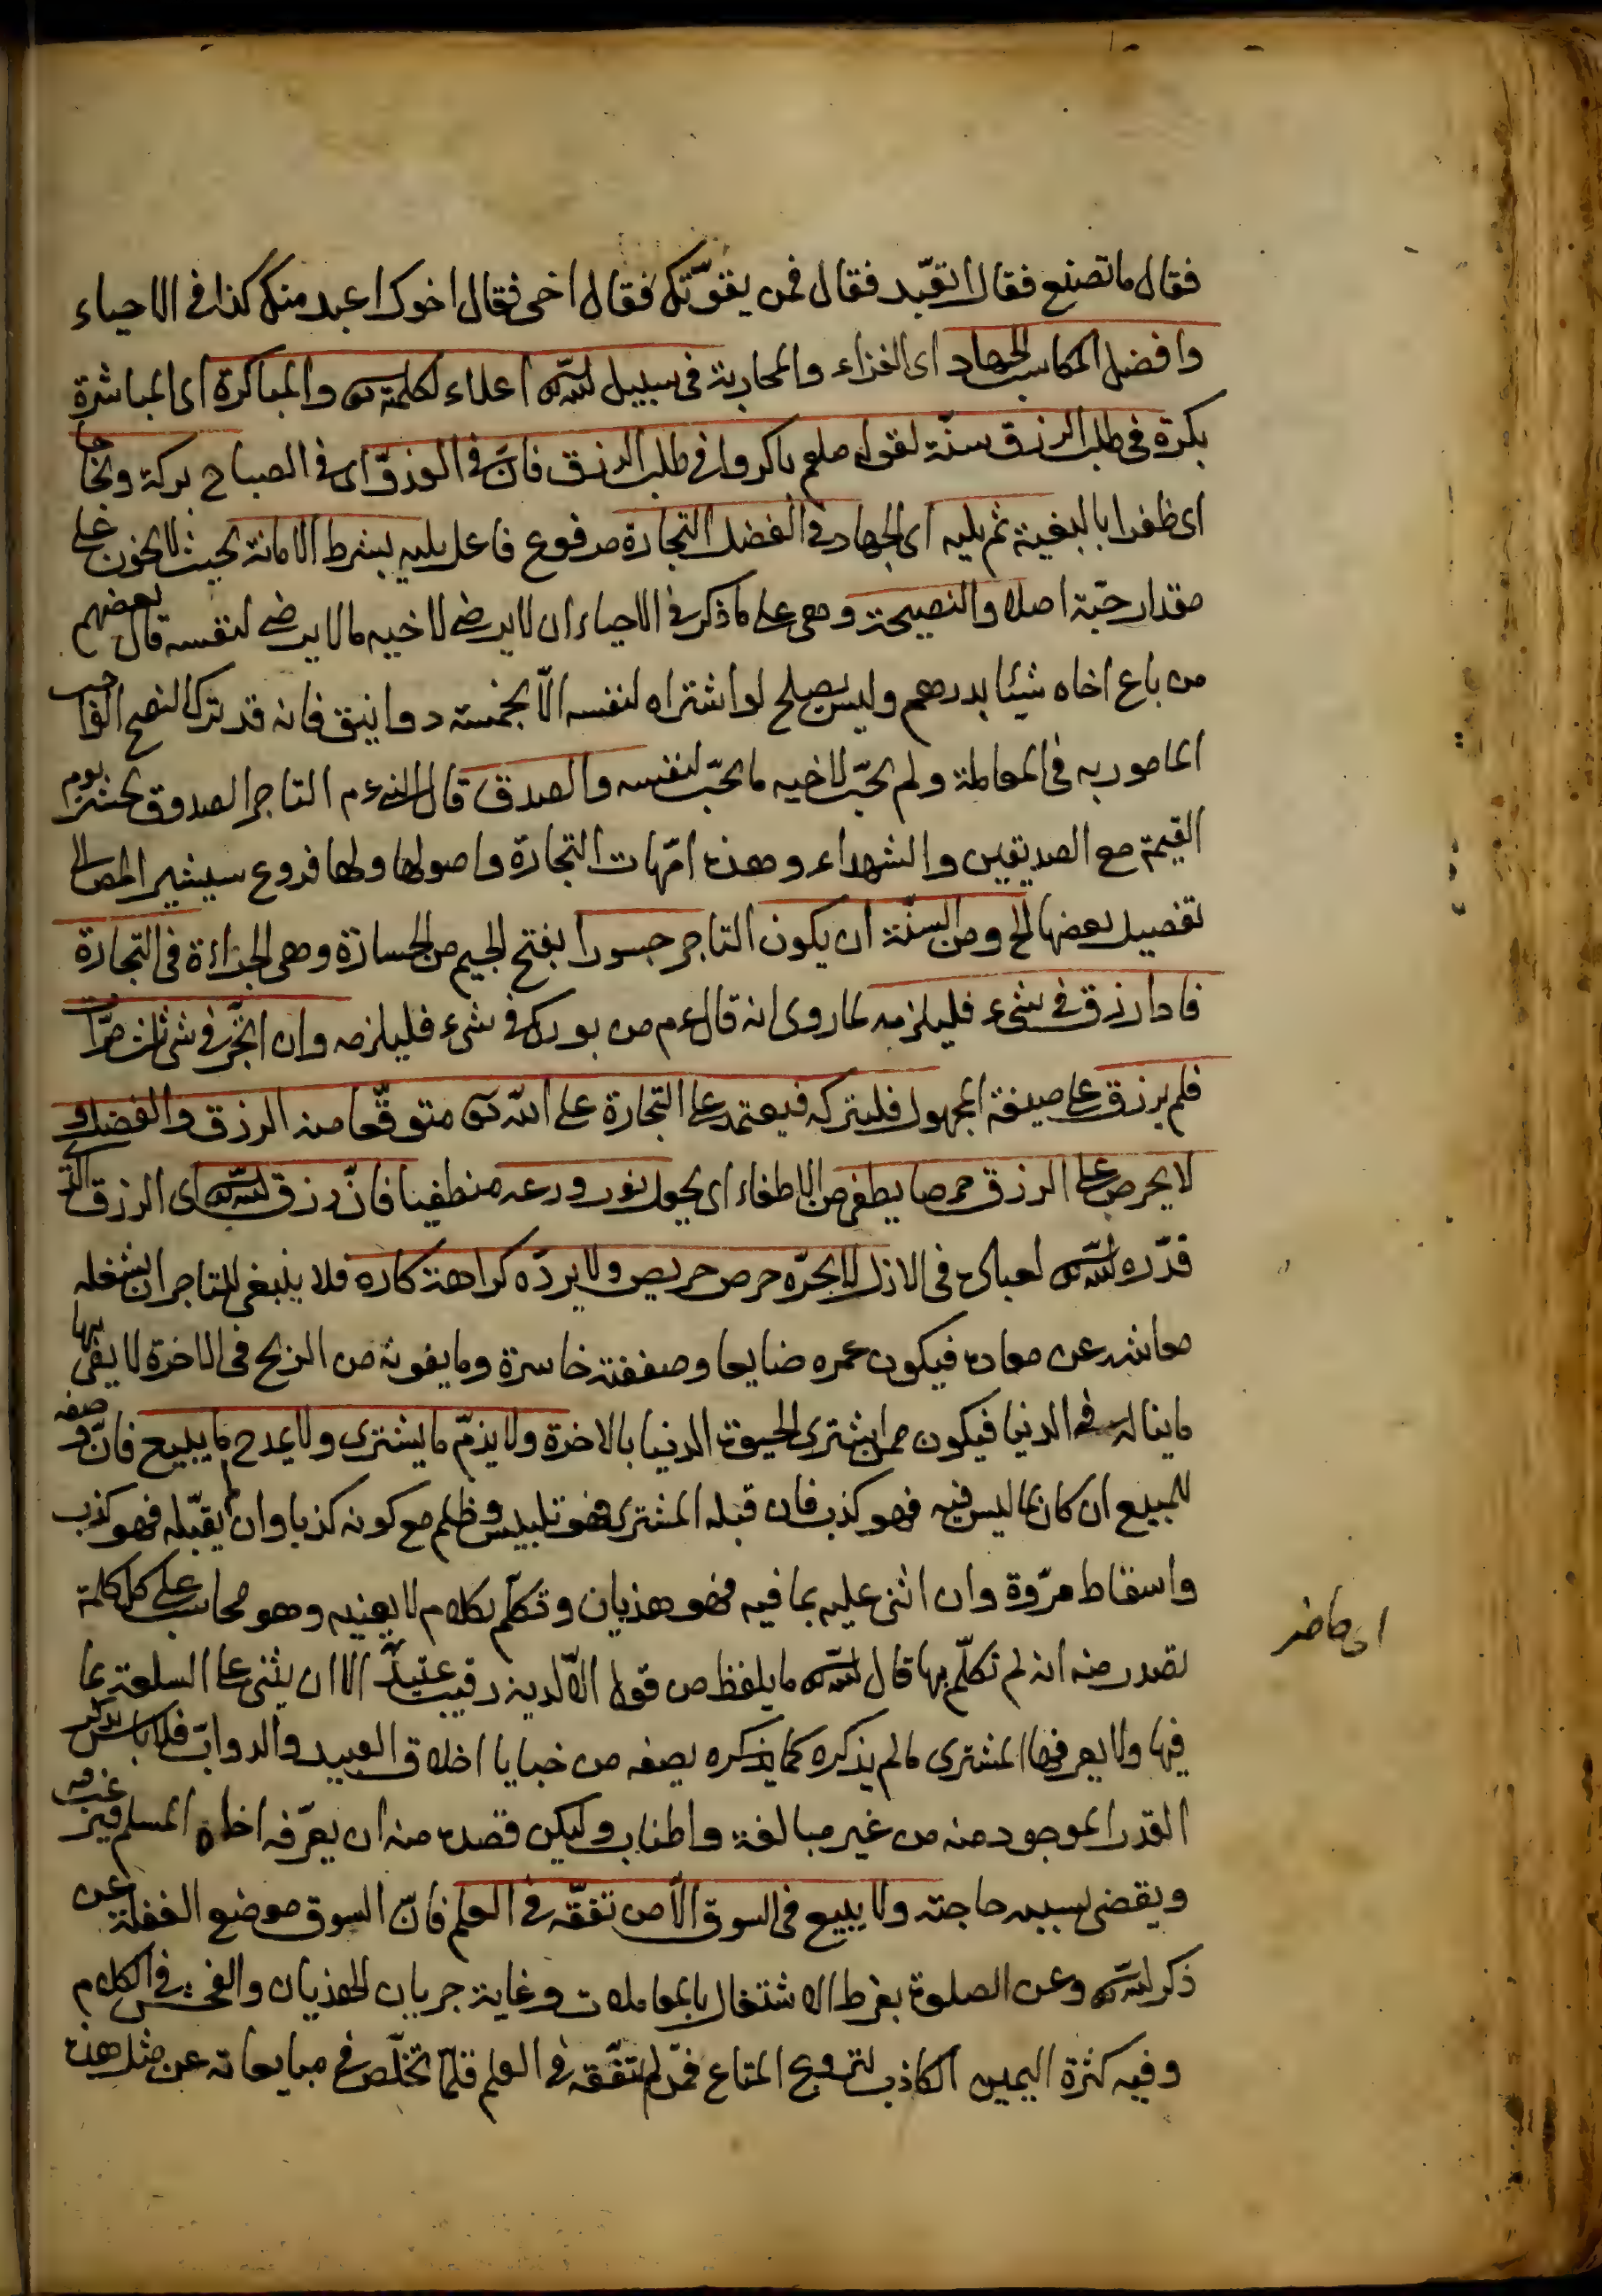 فقال ما تصنع فقال اتعبّد فقال فمن يقوّتك فقال اخى فقال اخوك اعبد منك كذا فى الاحياء
وافضل المكاسب الجهاد اى الغزاء والمحاربة فى سبيل الله اعلاء لكلمته تعالى والمباكرة اى المباشرة
بكرة فى طلب الرزق سنّة لقوله صلعم باكروا فى طلب الرزق فانّ فى الغدوّ اى فى الصباح بركة ونجاحا
اى ظفرا بالبغية ثم يليه اى الجهاد فى الفضل التجارة مرفوع فاعل يليه بشرط الامانة بحيث لا يخون على
مقدار حبّة اصلا والنصيحة وهى على ما ذكر فى الاحياء ان لا يرضى لاخيه ما لا يرضى لنفسه قال بعضهم
من باع اخاه شيئا بدرهم وليس يصلح لو اشتراه لنفسه الّا بخمسة دوانيق فانه قد ترك النصح الواجب
المامور به فى المعاملة ولم يحبّ لاخيه ما يحبّ لنفسه والصدق قال النبى ءم التاجر الصدوق يحشر يوم
القيمة مع الصديقين والشهداء وهذه امّهات التجارة واصولها ولها فروع سيشير المص الى
تفصيل بعضها الخ ومن السنّة ان يكون التاجر جسورا بفتح الجيم من الجسارة وهى الجراءة فى التجارة
فاذا رزق فى شىء فليلزمه لما روى انه قال ءم من بورك فى شىء فليلزمه وان اتّجر فى شىء ثلث مرّات
فلم يرزق على صيغة المجهول فليتركه فيعتمد على التجارة على الله تعالى متوقّعا منه الرزق والفضل و
لا يحرص على الرزق حرصا يطفى من الاطفاء اى يجعل نور ورعه منطفيا فانّ رزق الله اى الرزق الذى
قدّره الله لعباده فى الازل لا يجرّه حرص حريص ولا يردّه كراهة كاره فلا ينبغى للتاجر ان يشغله
معاشه عن معاده فيكون عمره ضايعا وصفقته خاسرة وما يفوته من الربح فى الاخرة لا يفى بها
ما يناله فى الدنيا فيكون ممن يشترى الحيوة الدنيا بالاخرة ولا يذمّ ما يشترى ولا يمدح ما يبيع فانّ وصفه
للمبيع ان كان بما ليس فيه فهو كذب فان قبله المشترى فهو تلبيس وظلم مع كونه كذبا وان لم يقبله فهو كذب
واسقاط مروّة وان اثنى عليه بما فيه فهو هذيان وتكلّم بكلام لا يعنيه وهو محاسب على كل كلمة
تصدر منه انه لم تكلّم بها قال الله ما يلفظ من قول الّا لديه رقيب عتيد الا ان يثنى على السلعة بما
فيها ولا يعرفها المشترى ما لم يذكره كما يذكره يصفه من خبايا اخلاق العبيد والدوابّ فلا باس بذكر
القدر الموجود منه من غير مبالغة واطناب وليكن قصده منه ان يعرّفه اخاه المسلم فيرغب فيه
ويقضى بسببه حاجته ولا يبيع فى السوق الّا من تفقّه فى العلم فانّ السوق موضع الغفلة عن
ذكر الله وعن الصلوة بفرط الاشتغال بالمعاملات وغاية جريان الهذيان والفحش فى الكلام
وفيه كثرة اليمين الكاذب لترويج المتاع فمن لم يتفقّه فى العلم قلّما تخلّص فى مبايعاته عن مثل هذه
اى حاضر